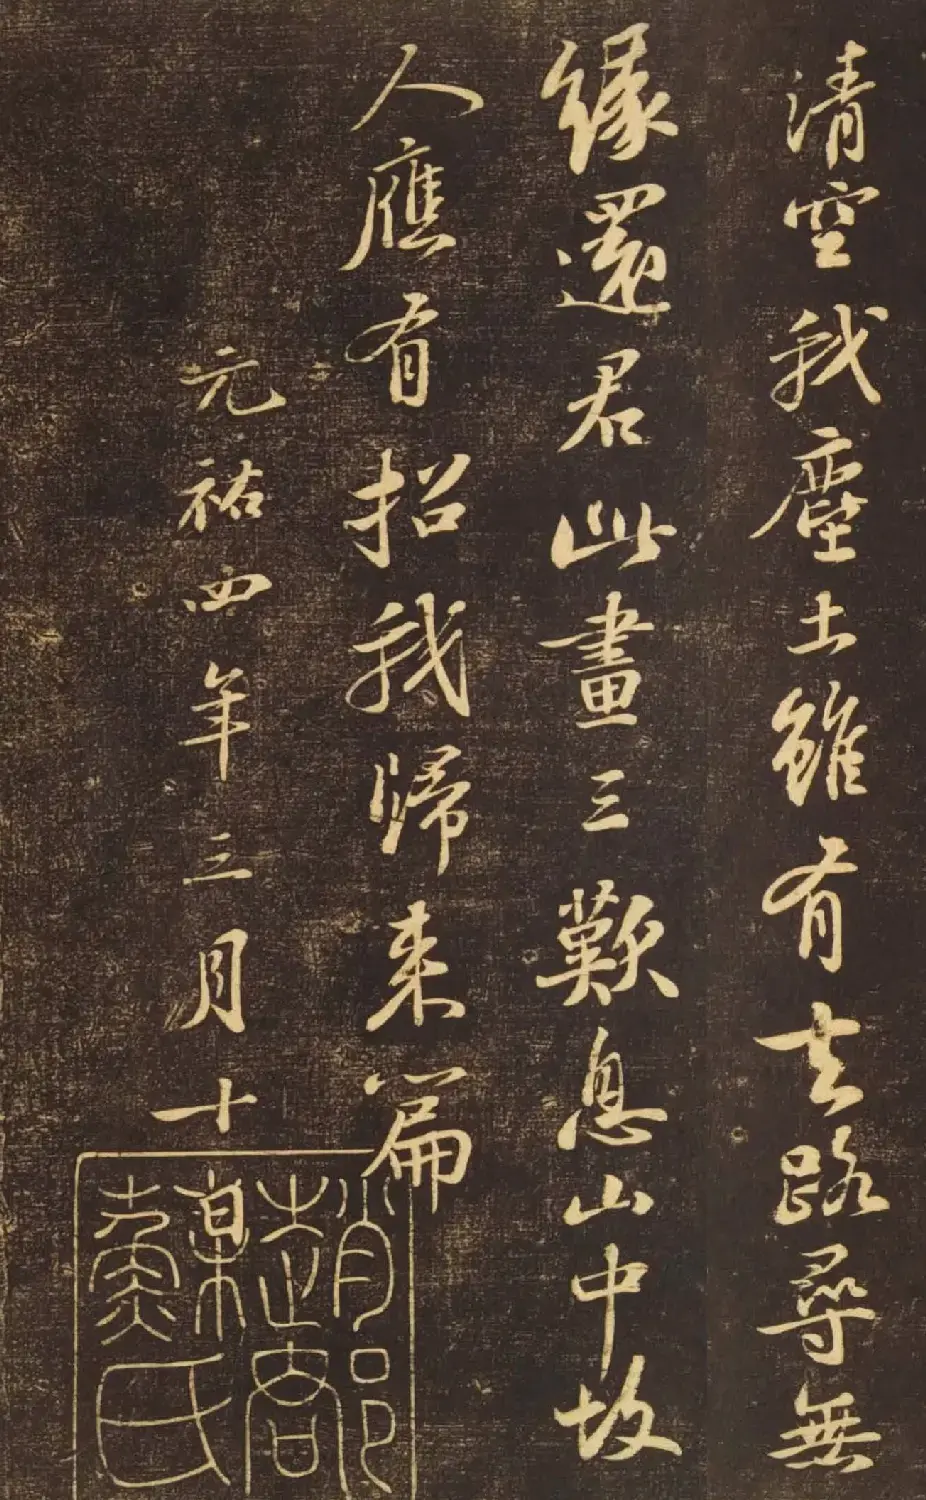 清空我塵土雖有去路尋無
緣還君此畫三歎息山中故
人應有招我歸來篇
元祐四年三月十日
趙郡蘇氏